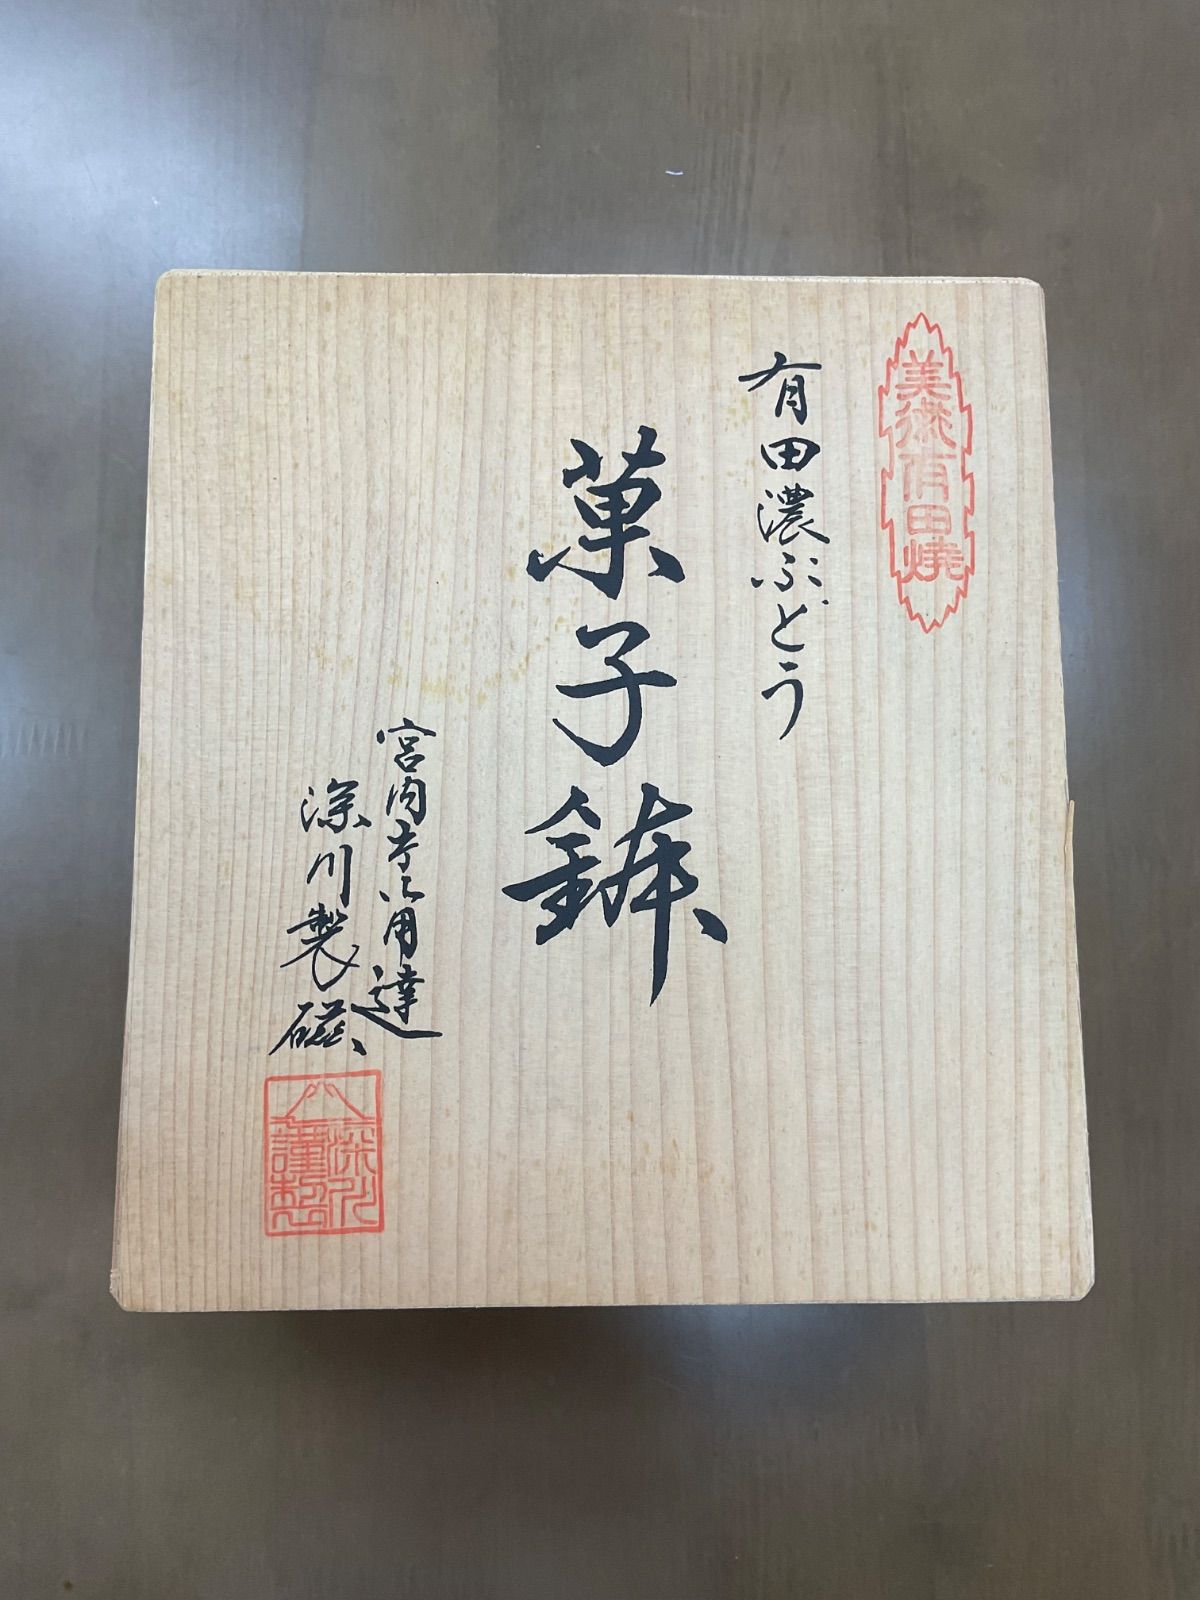 美術有田焼
有田濃ぶどう
菓子鉢
宮内庁御用達
深川製磁
深川
謹製